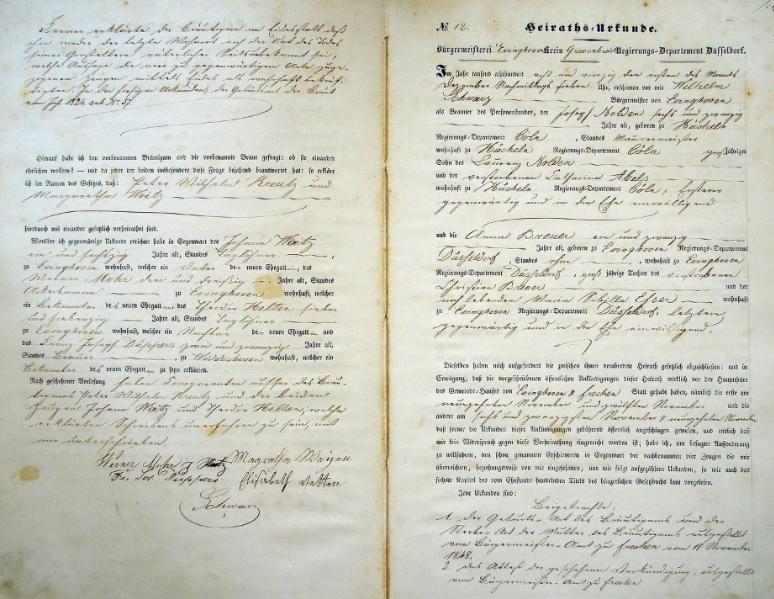 Ferner erklärte der Bräutigam an Eidesstatt daß
ihm weder der letzte Wohnort noch der Ort des Todes
seiner Großeltern väterlicher Seits bekannt sei,
welche Aussage die vier zu gegenwärtigem Acte zuge-
zogenen Zeugen mittelst Eides als wahrhaft bekräf-
tigten. In den hiesigen Urkunden, der Geburtsact der Braut
vom Jahr 1824 sub No
Hierauf habe ich den vorbenannten Bräutigam und die vorbenannte Braut gefragt: ob sie einander
ehelichen wollten? — und da jeder der beiden insbesondere diese Frage bejahend beantwortet hat: so erkläre
ich im Namen des Gesetzes, daß: Peter Wilhelm Kreutz und
Margaretha Weitz
hiedurch mit einander gesetzlich verheirathet sind.
Worüber ich gegenwärtige Urkunde errichtet habe in Gegenwart des Johann Weitz
ein und sechszig Jahre alt, Standes Taglöhner
zu Evinghoven wohnhaft, welcher ein Vater der neuen Ehegattin, des
Werner Mohr drei und dreißig Jahre alt, Standes
Ackersmann zu Evinghoven wohnhaft, welcher
ein Bekannter des neuen Ehegatten, des Theodor Helten sieben
und siebenzig Jahre alt, Standes Taglöhner
zu Evinghoven wohnhaft, welcher ein Nachbar der neuen Ehegattin und
des Franz Joseph Düppers zwei und zwanzig Jahre alt,
Standes Brauer zu Widdeshoven wohnhaft, welcher ein
Bekannter des neuen Ehegatten zu seyn erklären.
Nach geschehener Vorlesung haben Comparenten außer dem Bräu-
tigam Peter Wilhelm Kreutz und den beiden
Zeugen Johann Weitz und Theodor Helten, welche
erklärten Schreibens unerfahren zu sein, mit
mir unterschrieben.
Werner Mohr
Fr. Jos. Düppers
Elisabeth
Schwarz
№ 12. Heiraths-Urkunde.
Bürgermeisterei Evinghoven Kreis Grevenbroich Regierungs-Departement Düsseldorf.
Im Jahr tausend achthundert acht und vierzig den ersten des Monats
Dezember Nachmittags sieben Uhr, erschienen vor mir Wilhelm
Schwarz Bürgermeister von Evinghoven
als Beamter des Personenstandes, der Joseph Nolden sechs und zwanzig
Jahre alt, geboren zu Hücheln
Regierungs-Departement Cöln, Standes Maurermeister
wohnhaft zu Hücheln Regierungs-Departement Cöln, großjähriger
Sohn des Laurenz Nolden
und der verstorbenen Catharina Abels
wohnhaft zu Hücheln Regierungs-Departement Cöln, Ersterer
gegenwärtig und in die Ehe einwilligend
und die Anna Breuer ein und zwanzig
Jahre alt, geboren zu Evinghoven Regierungs-Departement
Düsseldorf, Standes ohne, wohnhaft zu Evinghoven
Regierungs-Departement Düsseldorf, großjährige Tochter des verstorbenen
Christian Breuer und der
noch lebenden Maria Sibylla Esser wohnhaft
zu Evinghoven Regierungs-Departement Düsseldorf, letztere
gegenwärtig und in die Ehe einwilligend.
Dieselben haben mich aufgefordert die zwischen ihnen verabredete Heirath gesetzlich abzuschließen: und in
Erwägung, daß die vorgeschriebenen öffentlichen Ankündigungen dieser Heirath wirklich vor der Hauptthüre
des Gemeinde-Hauses von Evinghoven & Frechen Statt gehabt haben, nämlich die erste am
neunzehnten November und zwölften November und die
andere am sechs und zwanzigsten November & neunzehnten November
daß ferner die Urkunde dieser Ankündigungen gehörig öffentlich angeschlagen gewesen, und endlich daß
mir kein Widerspruch gegen diese Verheirathung eingereicht worden ist; habe ich, um besagter Aufforderung
zu willfahren, den schon genannten Erschienenen in Gegenwart der nachbenannten vier Zeugen die mir
überreichten, beziehungsweise von mir eingesehenen, und wie folgt aufgezählten Urkunden, so wie auch das
sechste Kapitel des vom Ehestand handelnden Titels des bürgerlichen Gesetzbuchs laut vorgelesen.
Jene Urkunden sind:
Beigebrachte:
1. Der Geburts-Act des Bräutigams und der
Sterbe-Act der Mutter des Bräutigams ausgestellt
vom Bürgermeister-Amt zu Frechen vom 11 November
1848.
2. das Attest der geschehenen Verkündigung, ausgestellt
vom Bürgermeister-Amt zu Frechen